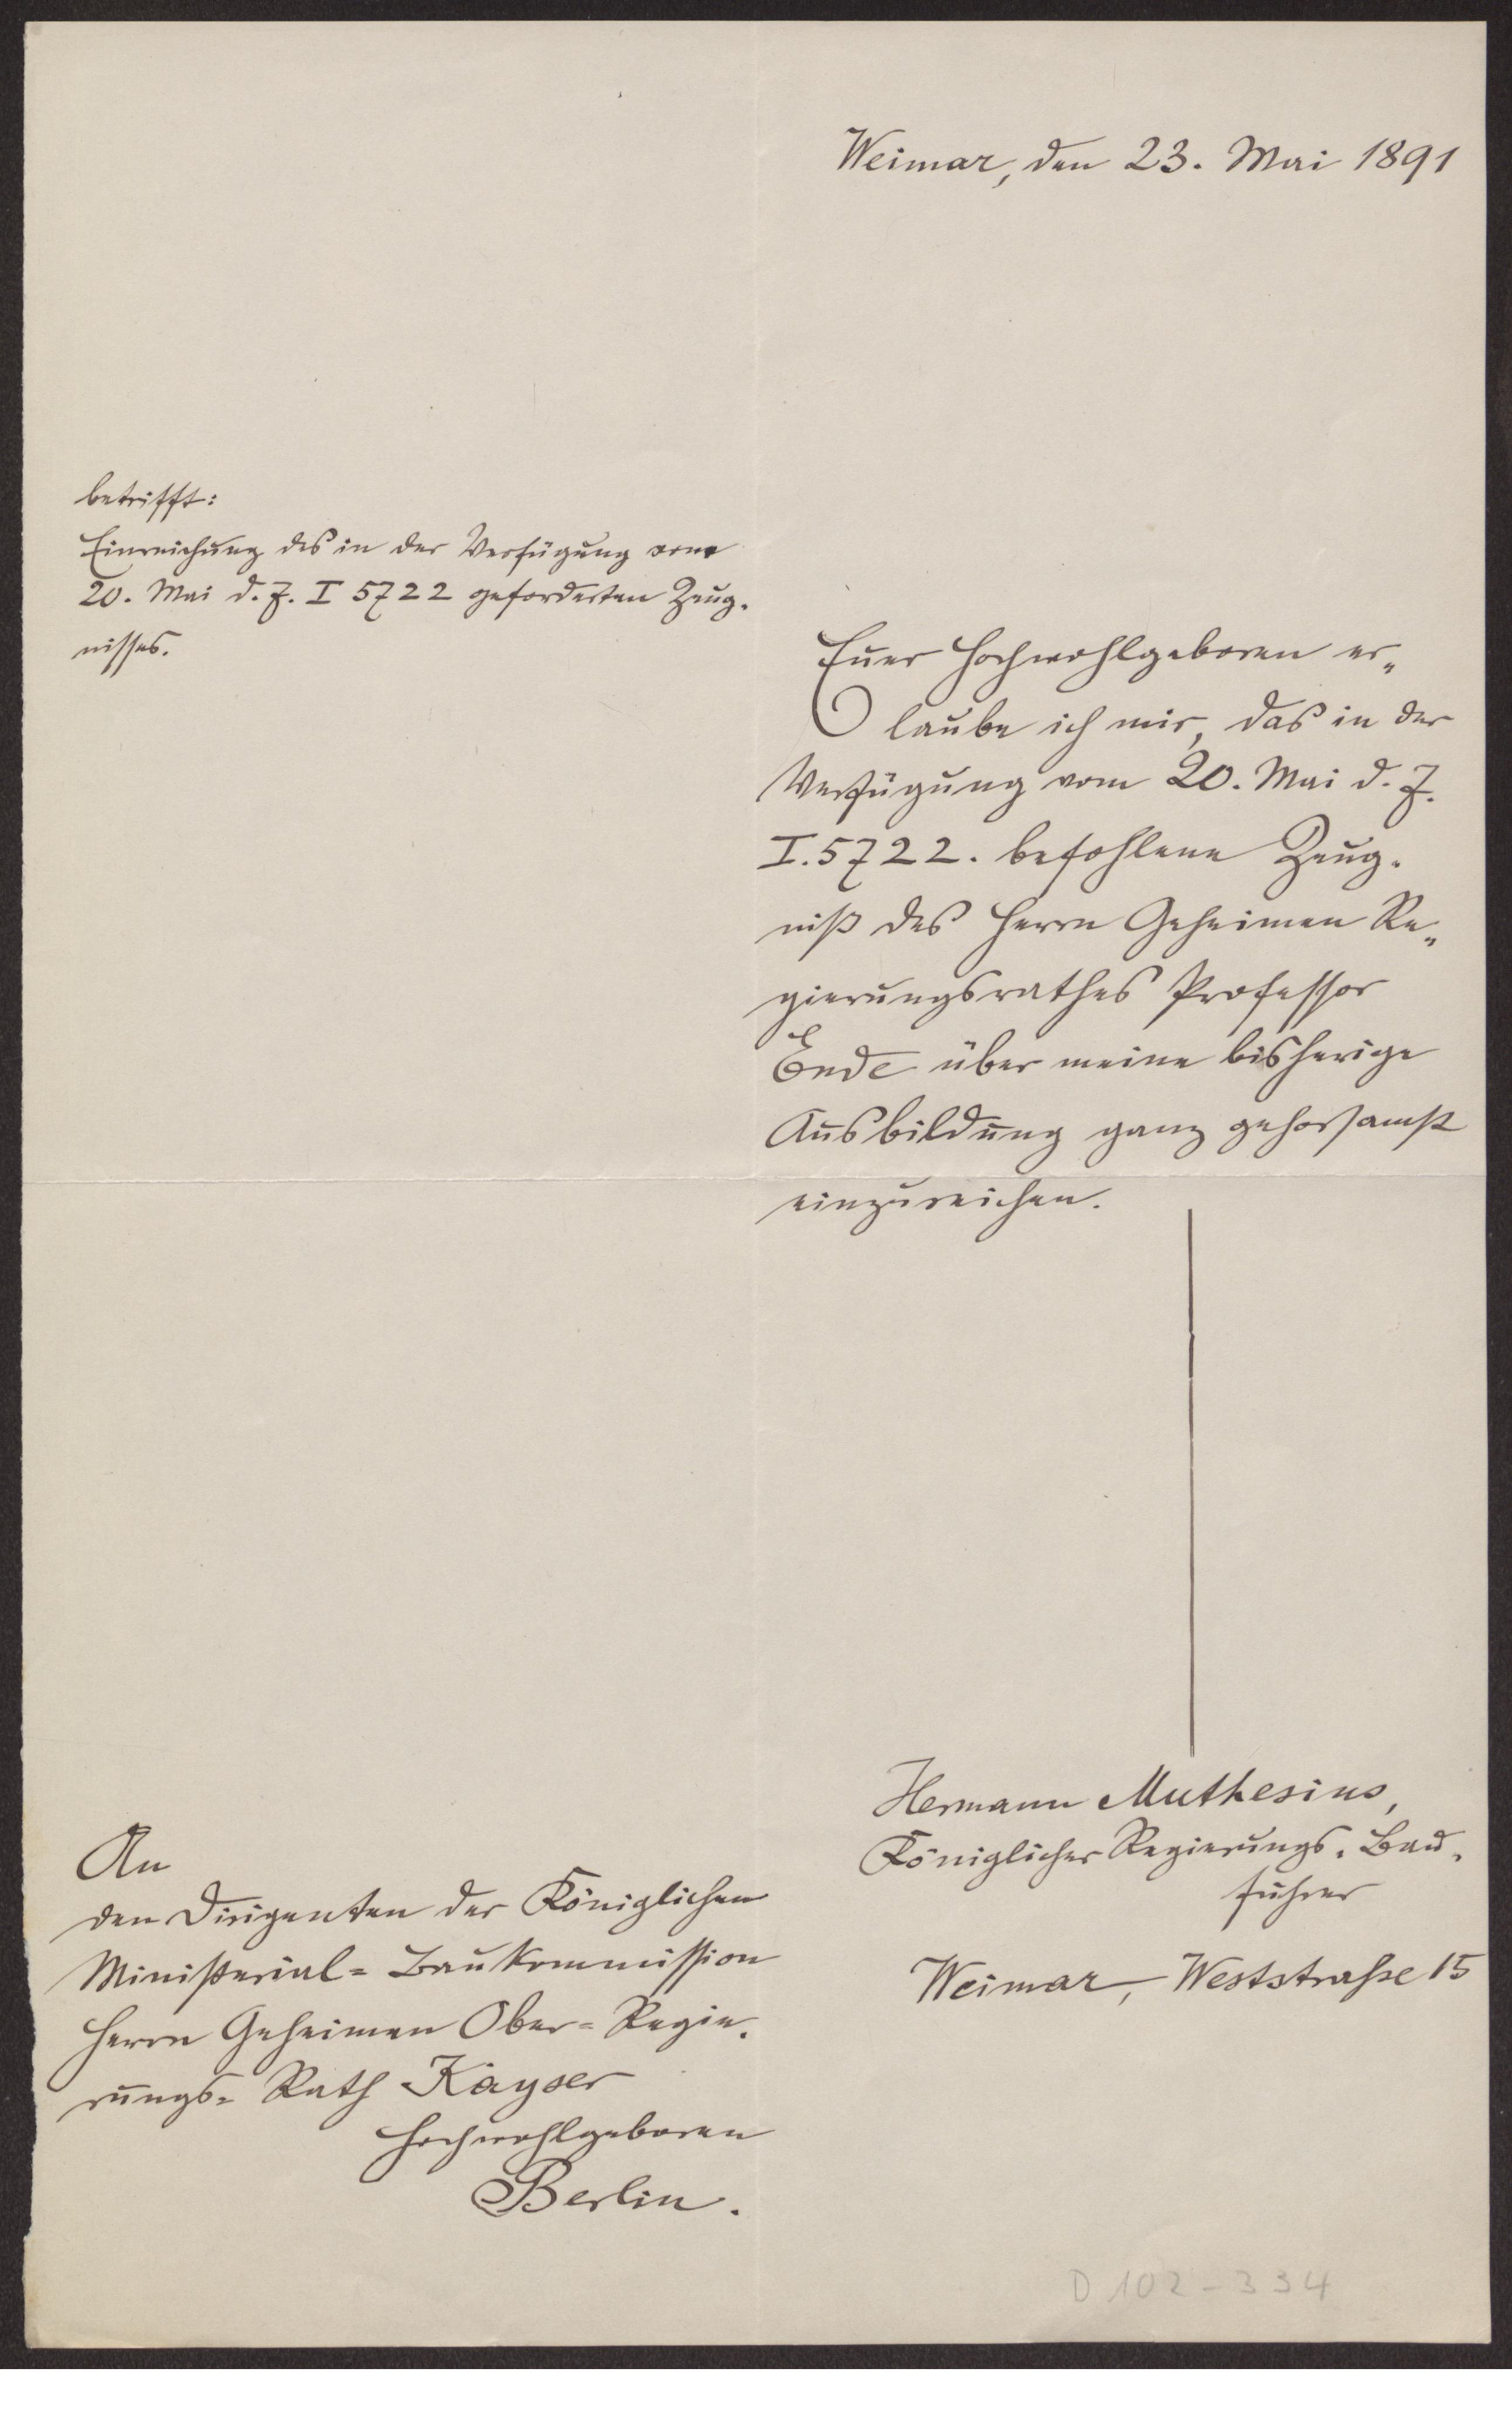 Weimar, den 23. Mai 1891
betrifft:
Einreichung des in der Verfügung vom
20. Mai d. J. I 5722 geforderten Zeug-
nisses.
Euer Hochwohlgeboren er-
laube ich mir, das in der
Verfügung vom 20. Mai d. J.
I. 5722. befohlene Zeug-
niß des Herrn Geheimen Re-
gierungsrathes Professor
Ende über meine bisherige
Ausbildung ganz gehorsamst
einzureichen.
Hermann Muthesius,
Königlicher Regierungs-Bau-
führer
Weimar, Weststraße 15
An
den Dirigenten der Königlichen
Ministerial-Baukommission
Herrn Geheimen Ober-Regie-
rungs-Rath Kayser
Hochwohlgeboren
Berlin.
D 102-334